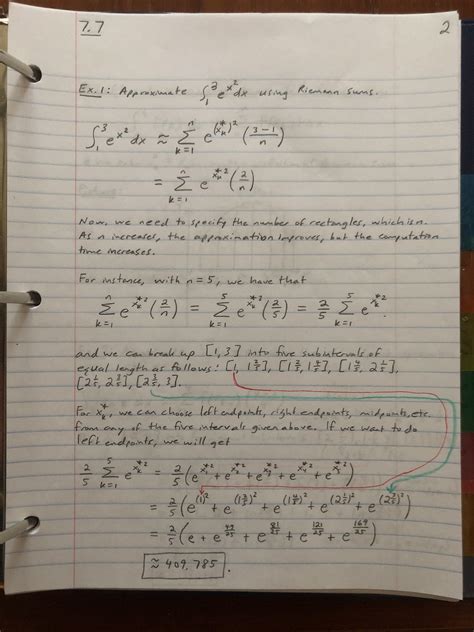 7.7
2
Ex. 1: Approximate ∫₁³ e^(x²) dx using Riemann sums.
∫₁³ e^(x²) dx ≈ Σ_(k=1)^n e^((x_k*)²) ((3-1)/n)
= Σ_(k=1)^n e^(x_k*²) (2/n)
Now, we need to specify the number of rectangles, which is n.
As n increases, the approximation improves, but the computation
time increases.
For instance, with n = 5, we have that
Σ_(k=1)^n e^(x_k*²) (2/n) = Σ_(k=1)^5 e^(x_k*²) (2/5) = 2/5 Σ_(k=1)^5 e^(x_k*²),
and we can break up [1, 3] into five subintervals of
equal length as follows: [1, 1 2/5], [1 2/5, 1 4/5], [1 4/5, 2 1/5],
[2 1/5, 2 3/5], [2 3/5, 3].
For x_k*, we can choose left endpoints, right endpoints, midpoints, etc.
from any of the five intervals given above. If we want to do
left endpoints, we will get
2/5 Σ_(k=1)^5 e^(x_k*²) = 2/5 (e^(x_1*²) + e^(x_2*²) + e^(x_3*²) + e^(x_4*²) + e^(x_5*²))
= 2/5 (e^((1)²) + e^((1 2/5)²) + e^((1 4/5)²) + e^((2 1/5)²) + e^((2 3/5)²))
= 2/5 (e + e^(49/25) + e^(81/25) + e^(121/25) + e^(169/25))
≈ 409.785.